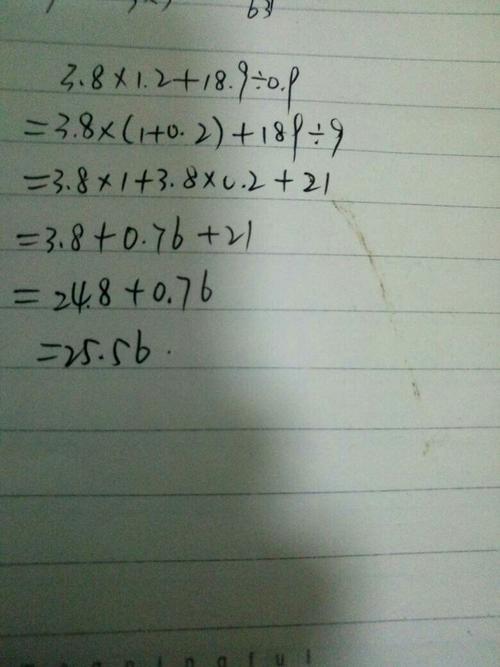 63
3.8×1.2+18.9÷0.9
=3.8×(1+0.2)+189÷9
=3.8×1+3.8×0.2+21
=3.8+0.76+21
=24.8+0.76
=25.56.
meaningful